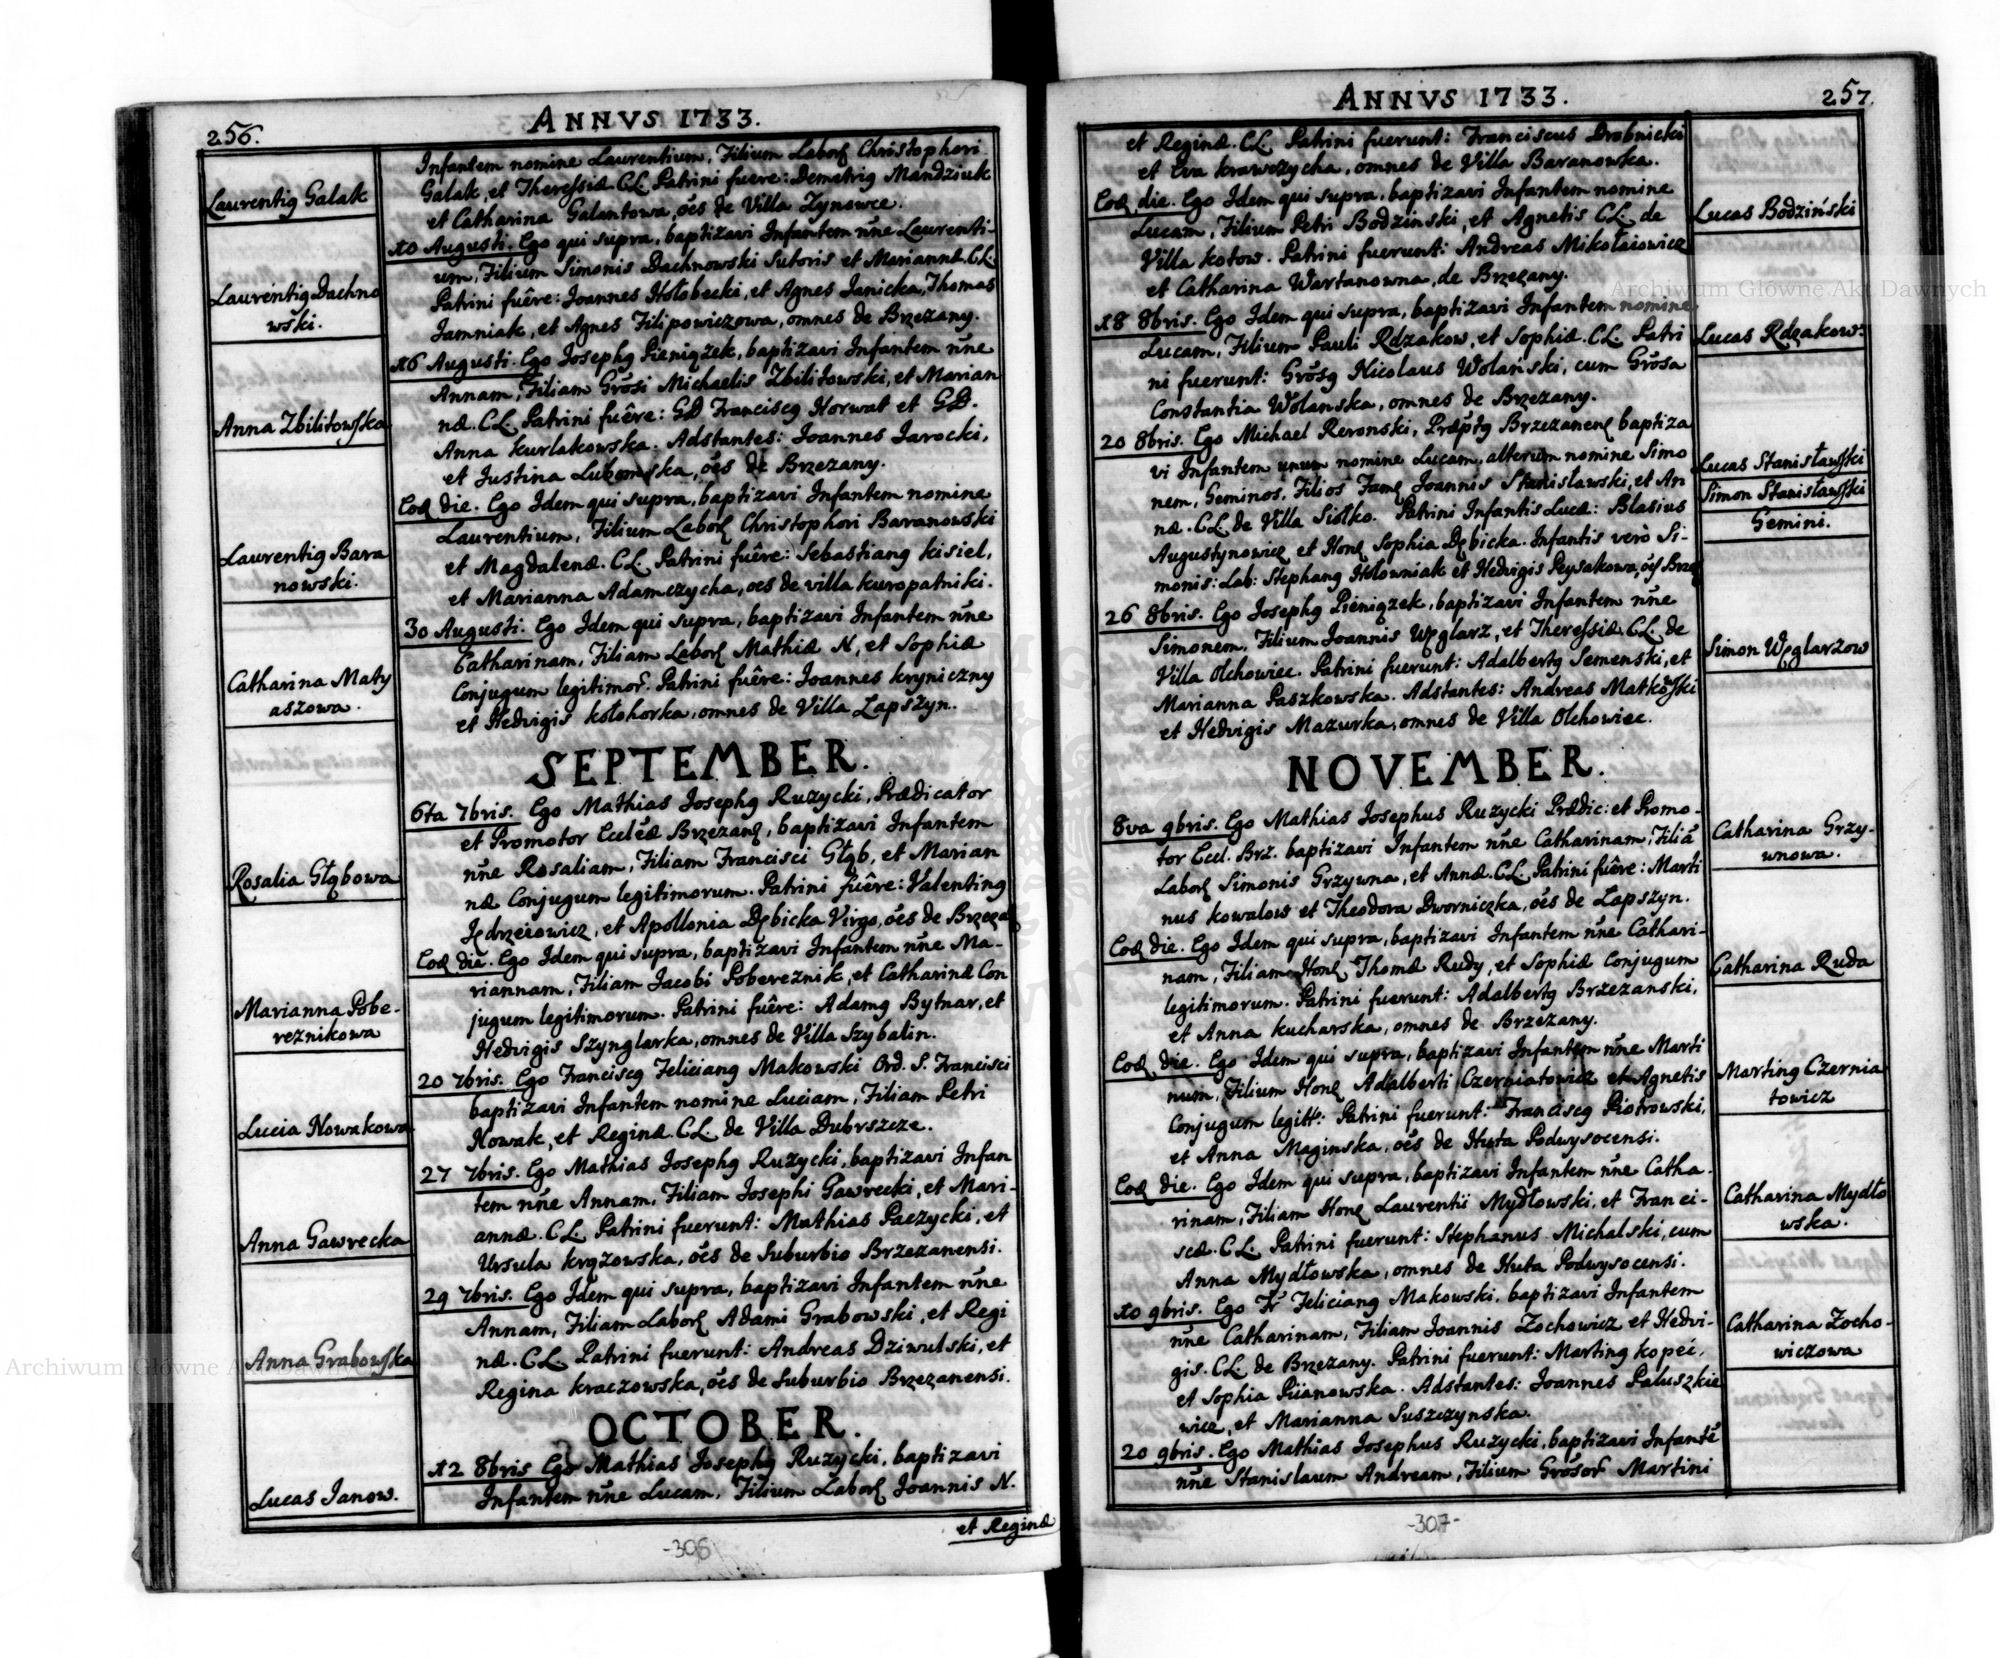 ANNVS 1733.
256.
Laurentig Galak
Laurentig Dachno
wski.
Anna Zbilitowska
Laurentig Bara
nowski.
Catharina Maty
aszowa.
Rosalia Głąbowa
Marianna Pobe-
reznikowa
Lucia Nowakowa
Anna Gawrecka
Anna Grabowska
Lucas Janow.
Infantem nomine Laurentium, Filium Laborẽ Christophori
Galak, et Theressiæ CL. Patrini fuere: Demetrig Mandziuk
et Catharina Galantowa, oẽs de Villa Zynowce.
10 Augusti. Ego qui supra, baptizavi Infantem nñe Laurenti-
um, Filium Simonis Dachnowski Sutoris et Mariannæ. CL.
Patrini fuêre: Joannes Hołobecki, et Agnes Janicka, Thomas
Jamniak, et Agnes Filipowiczowa, omnes de Brzezany.
16 Augusti. Ego Josephg Pieniążek, baptizavi Infantem nñe
Annam, Filiam Grõsi Michaelis Zbilitowski, et Marian
næ. CL. Patrini fuêre: GD Franciscg Horwat et GD.
Anna Kurlakowska. Adstantes: Joannes Jarocki,
et Justina Lubomska, oẽs de Brzezany.
Eod. die. Ego Idem qui supra, baptizavi Infantem nomine
Laurentium, Filium Laborẽ Christophori Baranowski
et Magdalenæ. CL. Patrini fuêre: Sebastiang Kisiel,
et Marianna Adamczycha, oes de villa Kuropatniki.
30 Augusti. Ego Idem qui supra, baptizavi Infantem nñe
Catharinam, Filiam Laborẽ Mathiæ N, et Sophiæ
Conjugum legitimor̃. Patrini fuêre: Joannes Kryniczny
et Hedvigis Kołohorka, omnes de Villa Łapszyn.
SEPTEMBER.
6ta 7bris. Ego Mathias Josephg Ruzycki, Prædicator
et Promotor Eccl̃æ Brzezanẽ, baptizavi Infantem
nñe Rosaliam, Filiam Francisci Głąb, et Marian
næ Conjugum legitimorum. Patrini fuêre: Valenting
Jędrzeiowicz, et Apollonia Dębicka Virgo, oẽs de Brzezã
Eod. die. Ego Idem qui supra, baptizavi Infantem nñe Ma-
riannam, Filiam Jacobi Pobereznik, et Catharinæ Con
jugum legitimorum. Patrini fuêre: Adamg Bytnar, et
Hedvigis Szynglarka, omnes de Villa Szybalin.
20 7bris. Ego Franciscg Feliciang Makowski Ord. S. Francisci
baptizavi Infantem nomine Luciam, Filiam Petri
Nowak, et Reginæ. CL. de Villa Dubrszcze.
27 7bris. Ego Mathias Josephg Ruzycki, baptizavi Infan
tem nñe Annam, Filiam Josephi Gawrecki, et Mari-
annæ. CL. Patrini fuerunt: Mathias Paczycki, et
Ursula Krązowska, oẽs de Suburbio Brzezanensi.
29 7bris. Ego Idem qui supra, baptizavi Infantem nñe
Annam, Filiam Laborẽ Adami Grabowski, et Regi
næ. CL. Patrini fuerunt: Andreas Dziwulski, et
Regina Kraczowska, oẽs de Suburbio Brzezanensi.
OCTOBER.
12 8bris Ego Mathias Josephg Ruzycki, baptizavi
Infantem nñe Lucam, Filium Laborẽ Joannis N.
et Reginæ
-306
ANNVS 1733.
257.
et Reginæ. CL. Patrini fuerunt: Franciscus Drobnicki
et Eva Krawczycha, omnes de Villa Baranowka.
Eod. die. Ego Idem qui supra, baptizavi Infantem nomine
Lucam, Filium Petri Bodzinski, et Agnetis CL. de
Villa Kotow. Patrini fuerunt: Andreas Mikołaiowicz
et Catharina Wartanowna, de Brzezany.
18 8bris. Ego Idem qui supra, baptizavi Infantem nomine
Lucam, Filium Pauli Rdzakow, et Sophiæ. CL. Patri
ni fuerunt: Grõsg Nicolaus Wolański, cum Grõsa
Constantia Wolanska, omnes de Brzezany.
20 8bris. Ego Michael Reronski, Præpt̃g Brzezanenẽ baptiza
vi Infantem unum nomine Lucam, alterum nomine Simo
nem, Geminos, Filios Famẽ Joannis Stanisławski, et An
næ. CL. de Villa Siołko. Patrini Infantis Lucæ: Blasius
Augustynowicz et Honẽ Sophia Dębicka. Infantis verò Si-
monis: Lab: Stephang Hołowniak et Hedvigis Peysakowa, oẽs Brze
26 8bris. Ego Josephg Pieniązek, baptizavi Infantem nñe
Simonem, Filium Joannis Węglarz, et Theressiæ. CL. de
Villa Olchowiec. Patrini fuerunt: Adalbertg Semenski, et
Marianna Paszkowska. Adstantes: Andreas Matkowski
et Hedvigis Mazurka, omnes de Villa Olchowiec.
NOVEMBER.
8va 9bris. Ego Mathias Josephus Ruzycki Prædic: et Promo-
tor Eccl. Brz. baptizavi Infantem nñe Catharinam, Filiã
Laborẽ Simonis Grzywna, et Annæ. CL. Patrini fuêre: Marti
nus Kowalow et Theodora Dworniczka, oẽs de Łapszyn.
Eod. die. Ego Idem qui supra, baptizavi Infantem nñe Cathari-
nam, Filiam Honẽ Thomæ Rudy, et Sophiæ Conjugum
legitimorum. Patrini fuerunt: Adalbertg Brzezanski,
et Anna Kucharska, omnes de Brzezany.
Eod. die. Ego Idem qui supra, baptizavi Infantem nñe Marti
num, Filium Honẽ Adalberti Czerniatowicz et Agnetis
Conjugum legitt: Patrini fuerunt: Franciscg Piotrowski,
et Anna Maginska, oẽs de Huta Podwysocensi.
Eod. die. Ego Idem qui supra, baptizavi Infantem nñe Catha-
rinam, Filiam Honẽ Laurentii Mydłowski, et Franci-
scæ. CL. Patrini fuerunt: Stephanus Michalski, cum
Anna Mydłowska, omnes de Huta Podwysocensi.
10 9bris. Ego Fr̃ Feliciang Makowski, baptizavi Infantem
nñe Catharinam, Filiam Joannis Zochowicz et Hedvi-
gis. CL. de Brzezany. Patrini fuerunt: Marting Kopeć,
et Sophia Piianowska. Adstantes: Joannes Paluszkie
wicz, et Marianna Suszczynska.
20 9bris. Ego Mathias Josephus Ruzycki, baptizavi Infantẽ
nñe Stanislaum Andream, Filium Grõsor̃ Martini
Lucas Bodziński
Lucas Rdzakow
Lucas Stanisławski
Simon Stanisławski
Gemini.
Simon Węglarzow
Catharina Grzy-
wnowa.
Catharina Ruda
Marting Czernia
towicz
Catharina Mydło
wska.
Catharina Zocho-
wiczowa
-307-
Archiwum Główne Akt Dawnych
Archiwum Główne Akt Dawnych